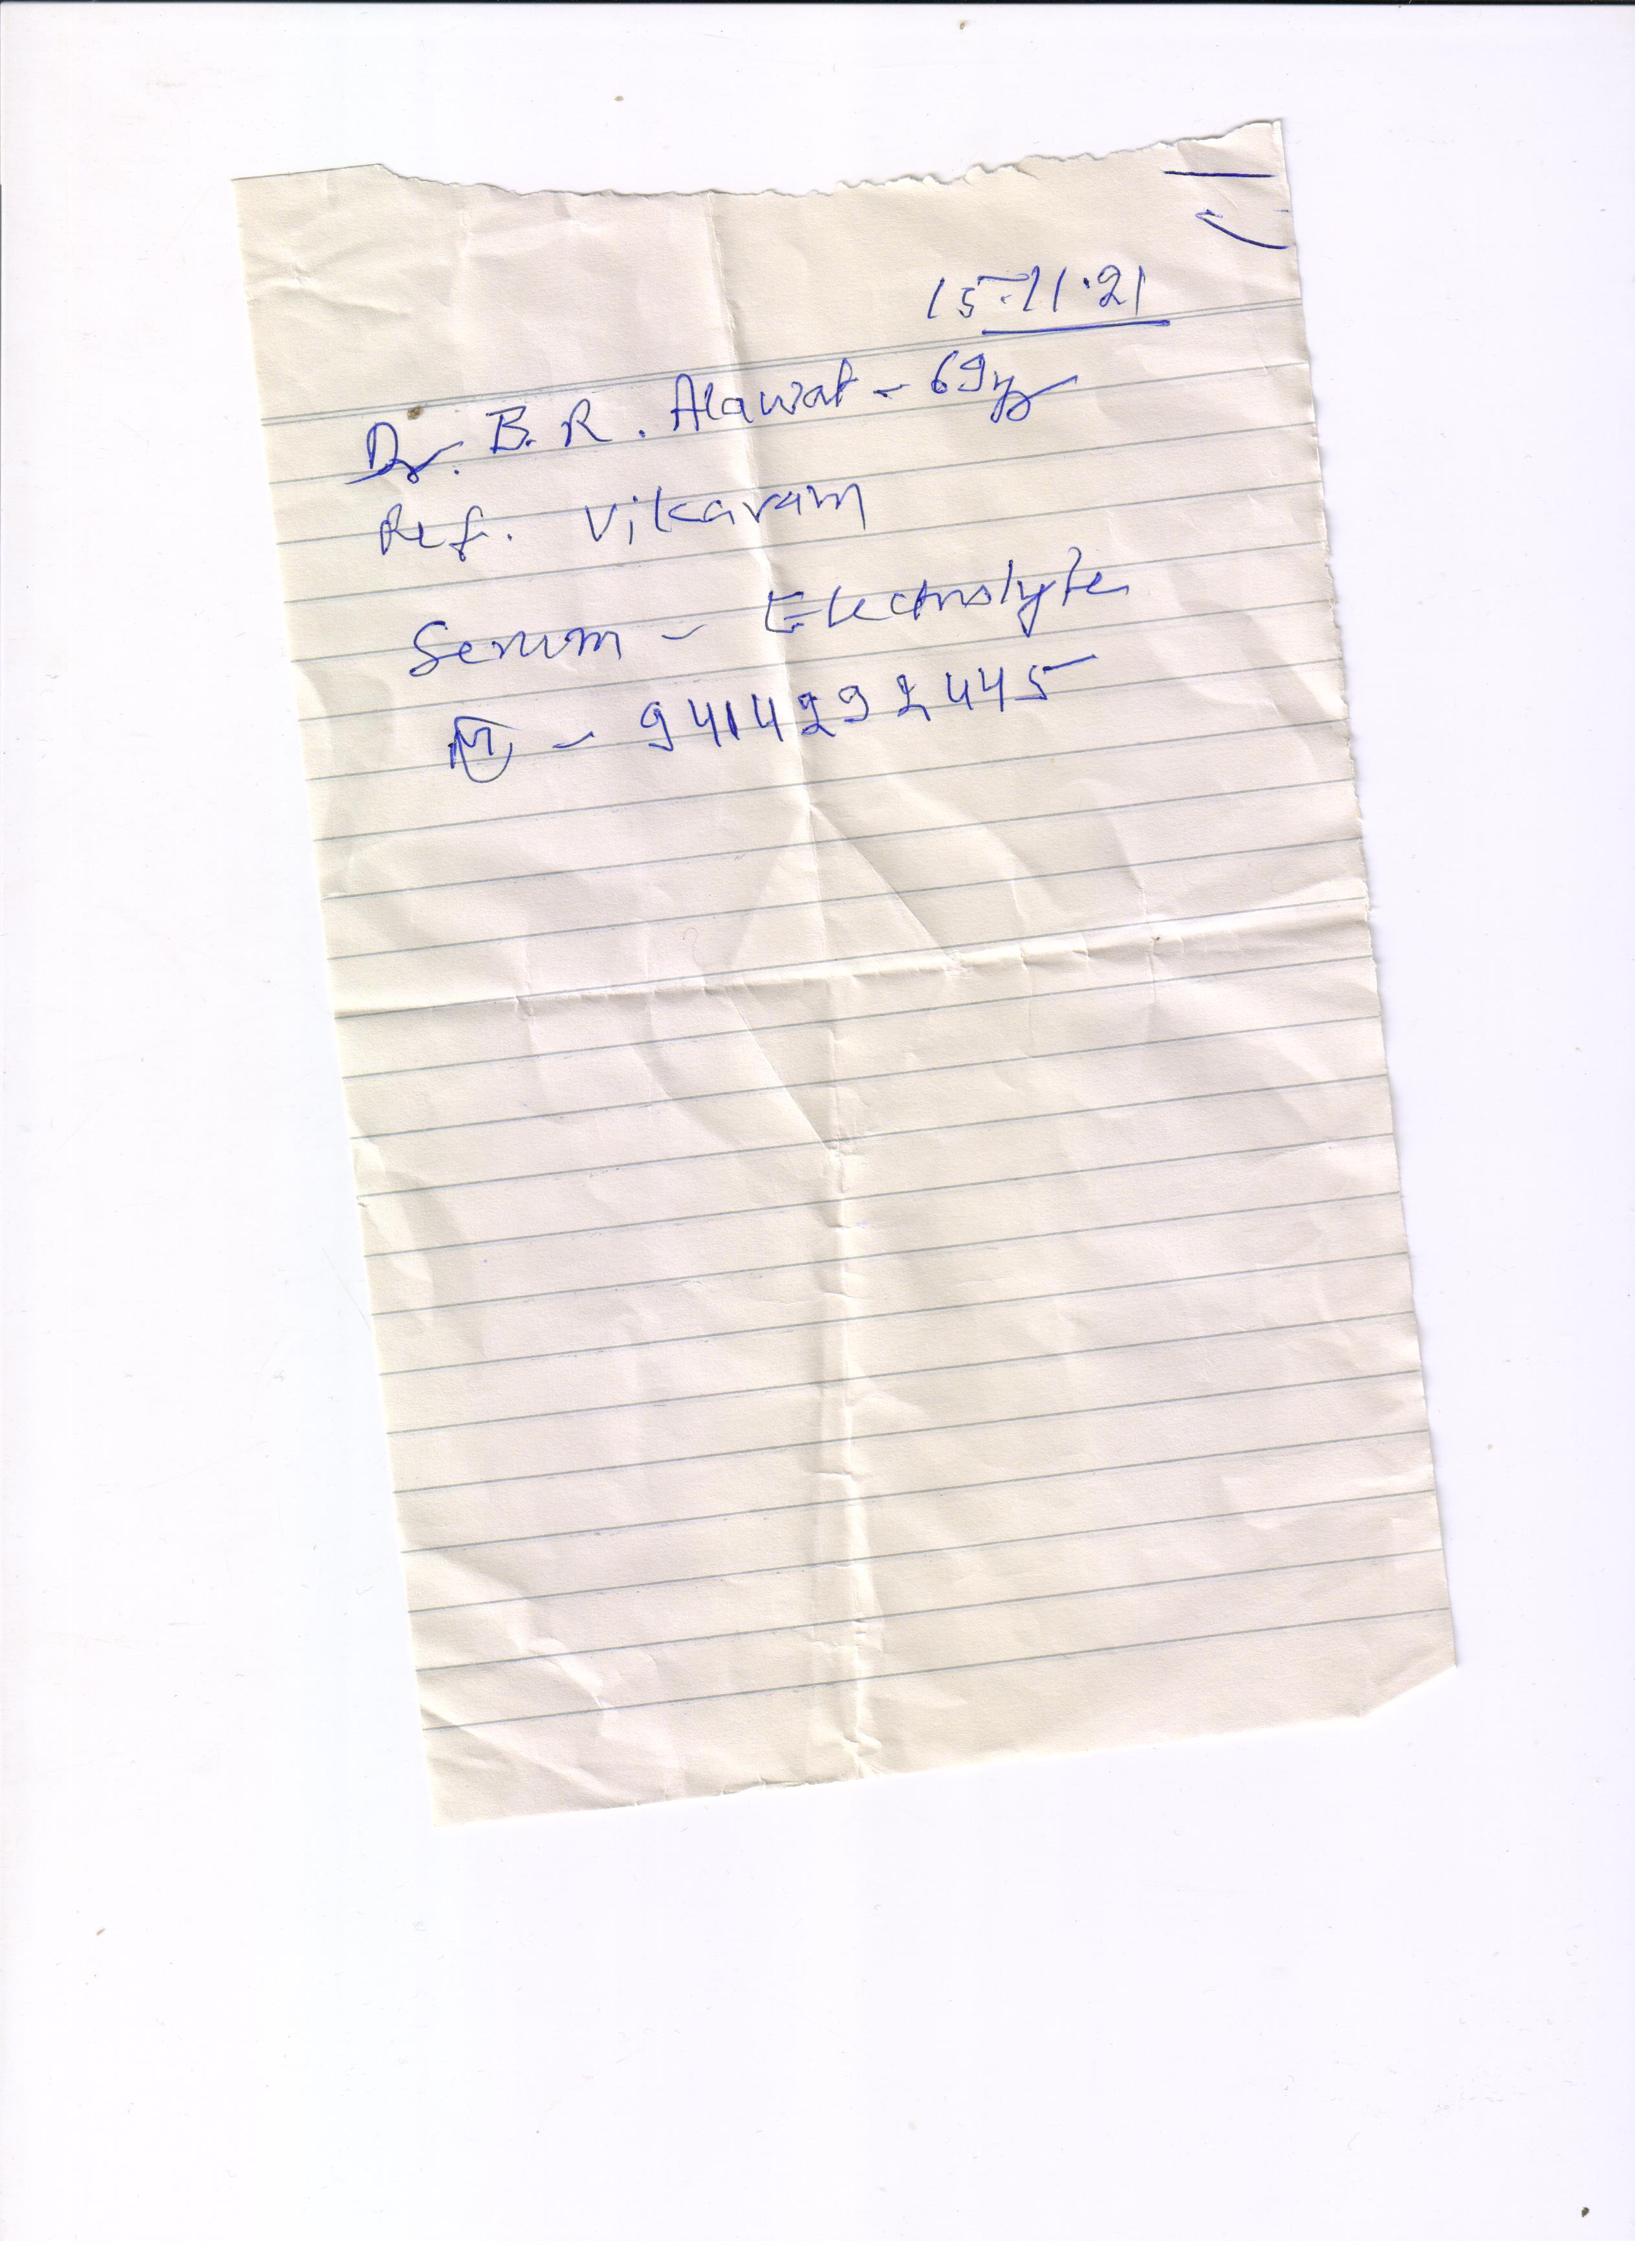 15.11.21
Dr. B. R. Alawat - 69y
Ref. Vikaram
Serum - Electrolyte
M - 9414292445